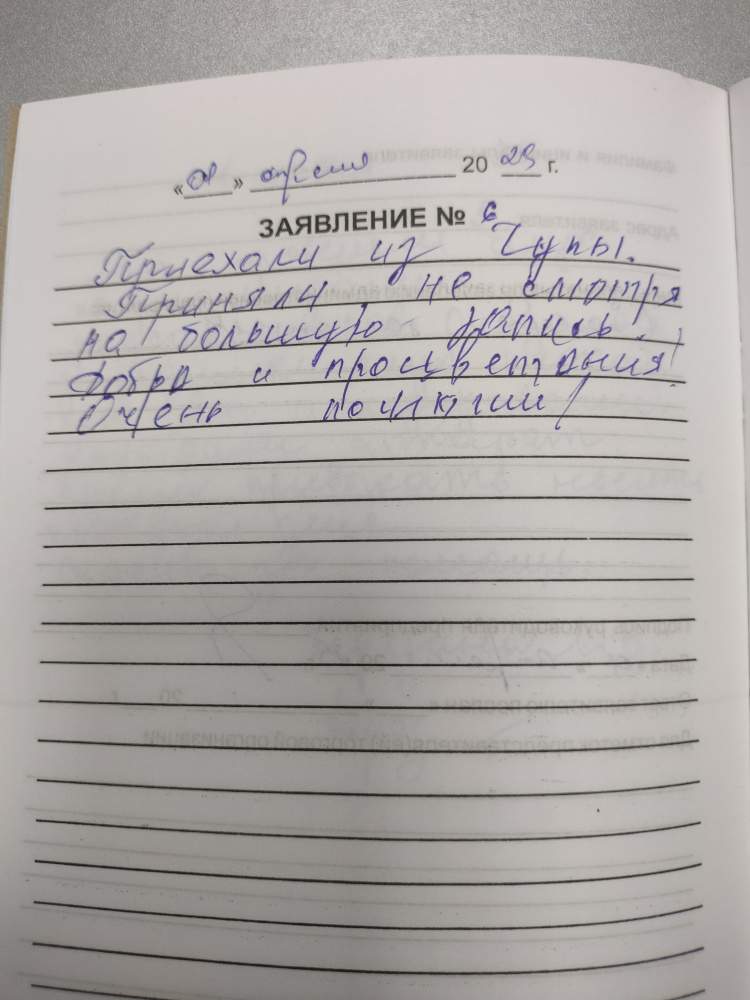 « » апреля 20 23 г.
ЗАЯВЛЕНИЕ № 6
Приехали из Чупы.
Приняли, не смотря
на большую запись.
Добра и процветания!
Очень